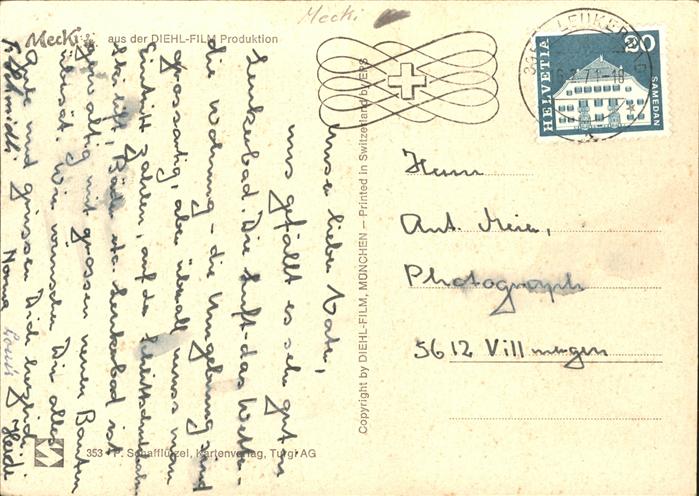 Mecki
Mecki
aus der DIEHL-FILM Produktion
Unser lieber Vati,
uns gefällt es sehr gut in
Leukerbad. Die Luft - das Wetter -
die Wohnung - die Umgebung sind
grossartig, aber überall muss man
Eintritt zahlen, auf der Schlittschuhbahn
Skilift, Bäder etc. Leukerbad ist
grossen neuen Bauten
Wir wünschen Dir alles
Gute und grüssen Dich herzlich
Schmidli Nonna Louis Heidi
353 P. Schafflützel, Kartenverlag, Turgi AG
Copyright by DIEHL-FILM, MÜNCHEN — Printed in Switzerland by ERS
HELVETIA
20
SAMEDAN
LEUKERBAD
Herrn
Ant. Meier,
Photograph
5612 Villmergen